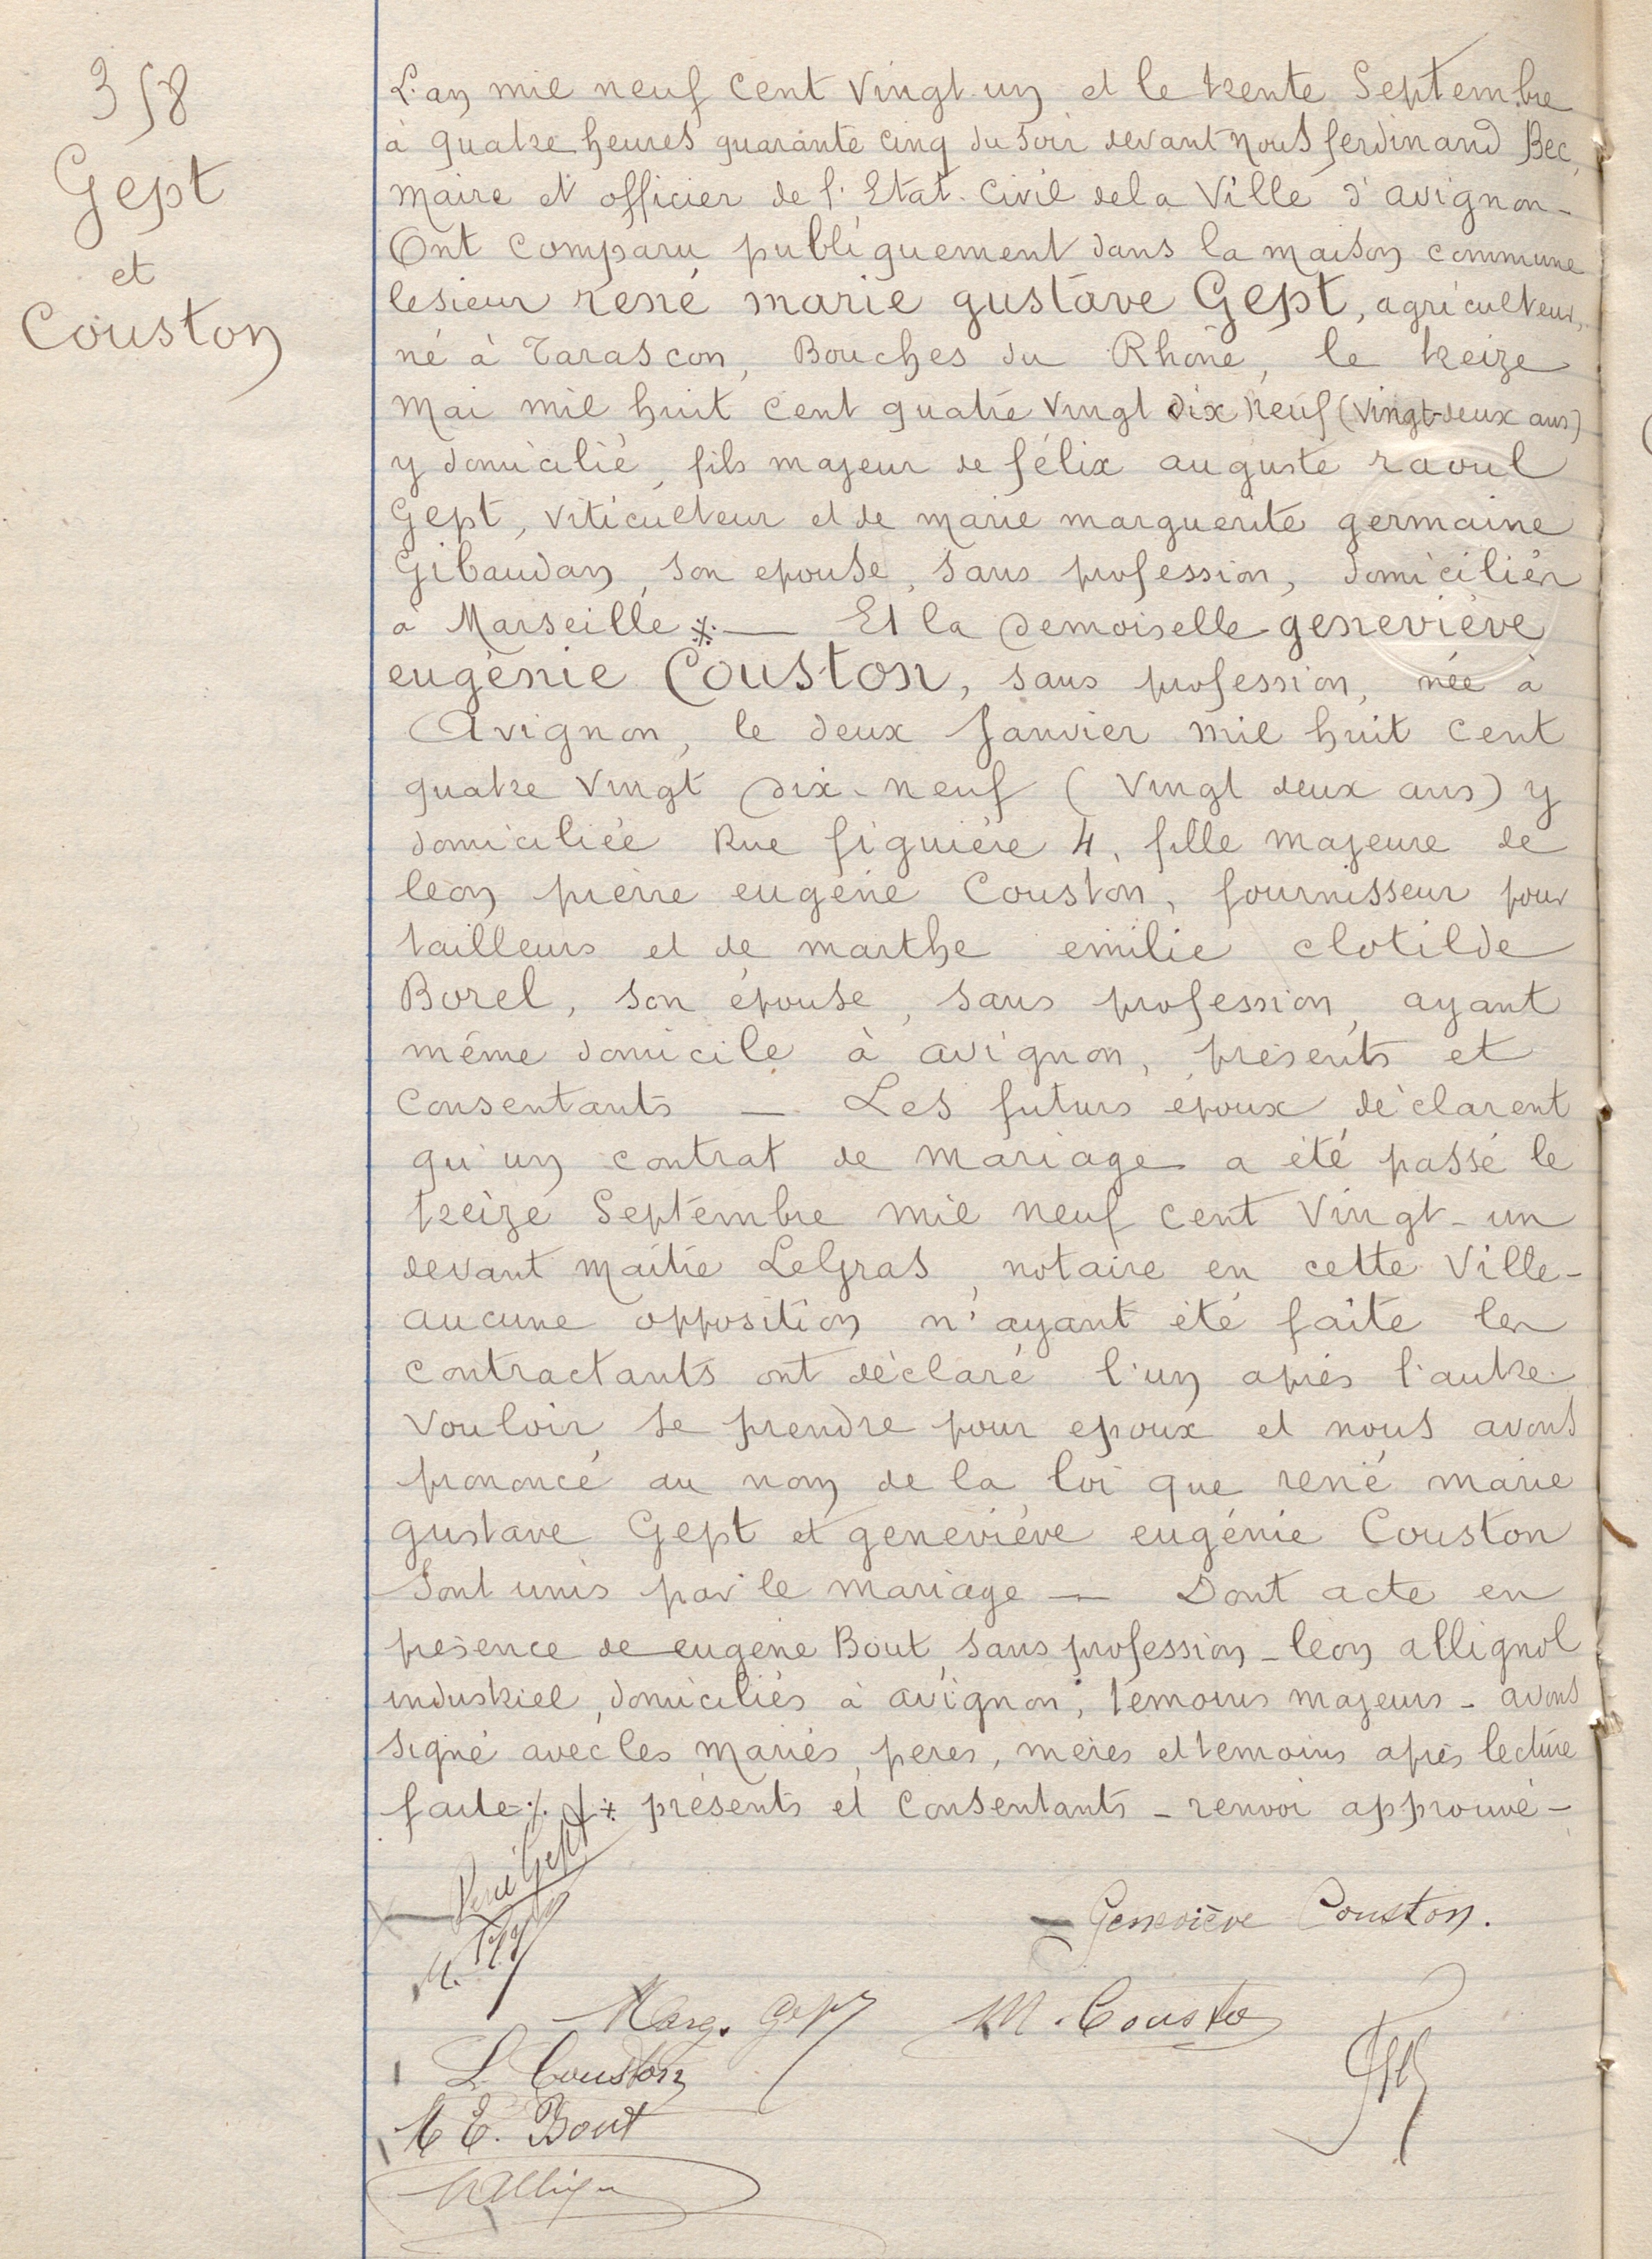 358
Gept
et
Couston
L'an mil neuf cent vingt-un et le trente Septembre
à quatre heures quarante cinq du soir devant nous ferdinand Bec,
maire et officier de l'Etat-Civil de la Ville d'avignon -
Ont comparu publiquement dans la maison commune
le sieur rené marie gustave Gept, agriculteur,
né à Tarascon, Bouches du Rhône, le treize
mai mil huit cent quatre vingt dix neuf (vingt-deux ans)
y domicilié, fils majeur de félix auguste raoul
Gept, viticulteur et de marie marguerite germaine
Gibaudan, son epouse, sans profession, domiciliés
à Marseille ⁎. — Et la demoiselle geneviève
eugénie Couston, sans profession, née à
Avignon, le deux Janvier mil huit cent
quatre vingt dix-neuf (vingt deux ans) y
domiciliée Rue figuière 4, fille majeure de
léon pierre eugène Couston, fournisseur pour
tailleurs et de marthe emilie clotilde
Borel, son épouse, sans profession, ayant
même domicile à avignon, présents et
consentants — Les futurs époux déclarent
qu'un contrat de mariage a été passé le
treize Septembre mil neuf cent vingt-un
devant maître LeGras, notaire en cette Ville -
aucune opposition n'ayant été faite les
contractants ont déclaré l'un après l'autre
vouloir se prendre pour epoux et nous avons
prononcé au nom de la loi que rené marie
gustave Gept et geneviève eugénie Couston
sont unis par le mariage — Dont acte en
présence de eugène Bout, sans profession - léon allignol
industriel, domiciliés à avignon, témoins majeurs - avons
signé avec les mariés, pères, mères et témoins après lecture
faite ⁒. ⁎ présents et consentants - renvoi approuvé -
René Gept
Geneviève Couston.
Marg. Gept
M. Couston
L. Couston
E. Bout